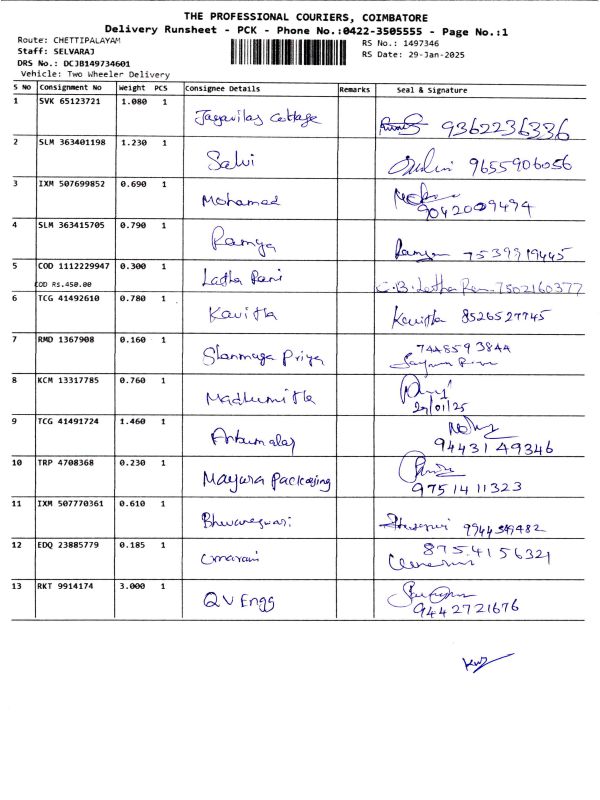 THE PROFESSIONAL COURIERS, COIMBATORE
Delivery Runsheet - PCK - Phone No.:0422-3505555 - Page No.:1
Route: CHETTIPALAYAM
Staff: SELVARAJ
DRS No.: DCJB149734601
Vehicle: Two Wheeler Delivery
RS No.: 1497346
RS Date: 29-Jan-2025
S No Consignment No Weight PCS Consignee Details Remarks Seal & Signature
1 SVK 65123721 1.080 1 Jagavilas Cottage 9362236336
2 SLM 363401198 1.230 1 Salvi 9655906056
3 IXM 507699852 0.690 1 Mohamed 9042009494
4 SLM 363415705 0.790 1 Ramya 7539919445
5 COD 1112229947 0.300 1 Latha Rani C.B. Latha Ran. 7502160377
COD Rs.450.00
6 TCG 41492610 0.780 1 Kavitha Kavitha 8526527745
7 RMD 1367908 0.160 1 Shanmuga Priya 7448593844
8 KCM 13317785 0.760 1 Madhumitha
29/01/25
9 TCG 41491724 1.460 1 Arbumalay
9443149346
10 TRP 4708368 0.230 1 Mayura Packaging
9751411323
11 IXM 507770361 0.610 1 Bhuvaneswari 9944549482
12 EDQ 23885779 0.185 1 Umarani 8754156321
13 RKT 9914174 3.000 1 QV Engg
9442721676